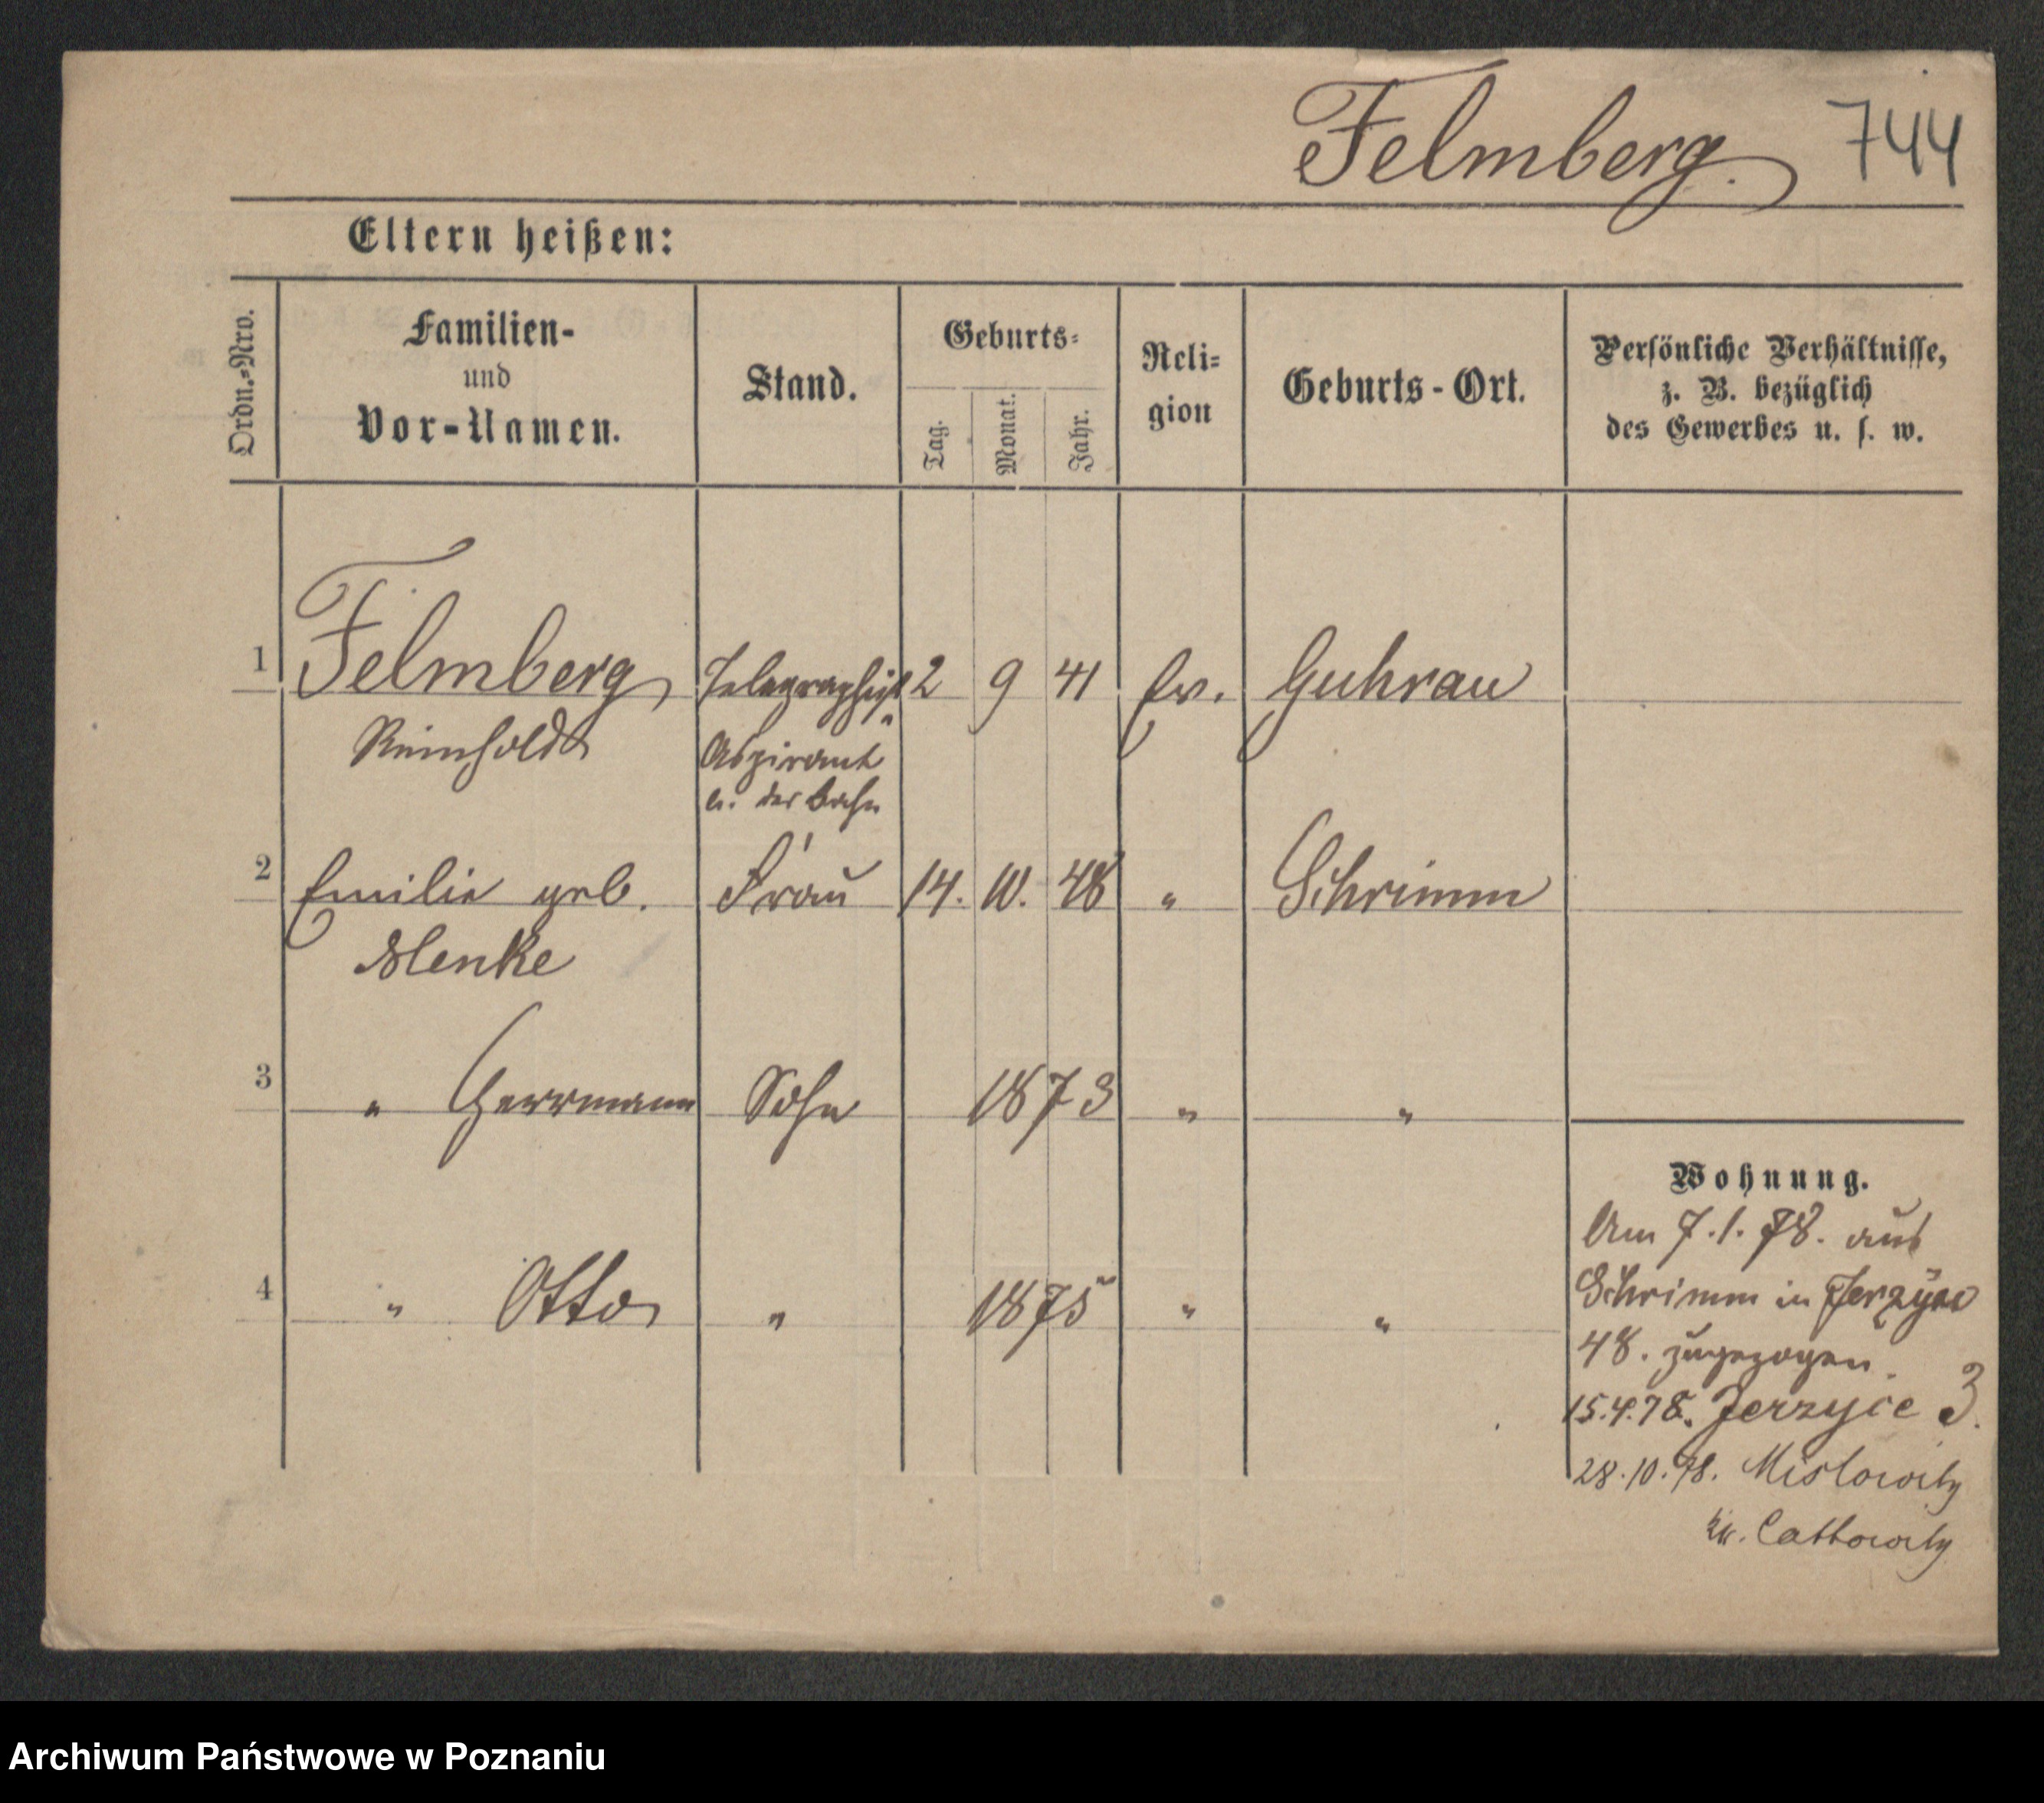 Felmberg. 744
Eltern heißen:
Ordn.-Nro.
Familien-
und
Vor-Namen.
Stand.
Geburts-
Tag.
Monat.
Jahr.
Reli-
gion
Geburts-Ort.
Persönliche Verhältnisse,
z. B. bezüglich
des Gewerbes u. s. w.
1 Felmberg Telegraphist 2 9 41 Ev. Guhrau
Reinhold Aspirant
a. der Bahn
2 Emilie geb. Frau 14. 10. 48 " Schrimm
Menke
3 " Herrmann Sohn 1873 " "
4 " Otto " 1875 " "
Wohnung.
Am 7.1.78. aus
Schrimm in Jerzyce
48. zugezogen.
15.4.78. Jerzyce 3.
28.10.78. Mislowitz
Kr. Cattowitz
Archiwum Państwowe w Poznaniu